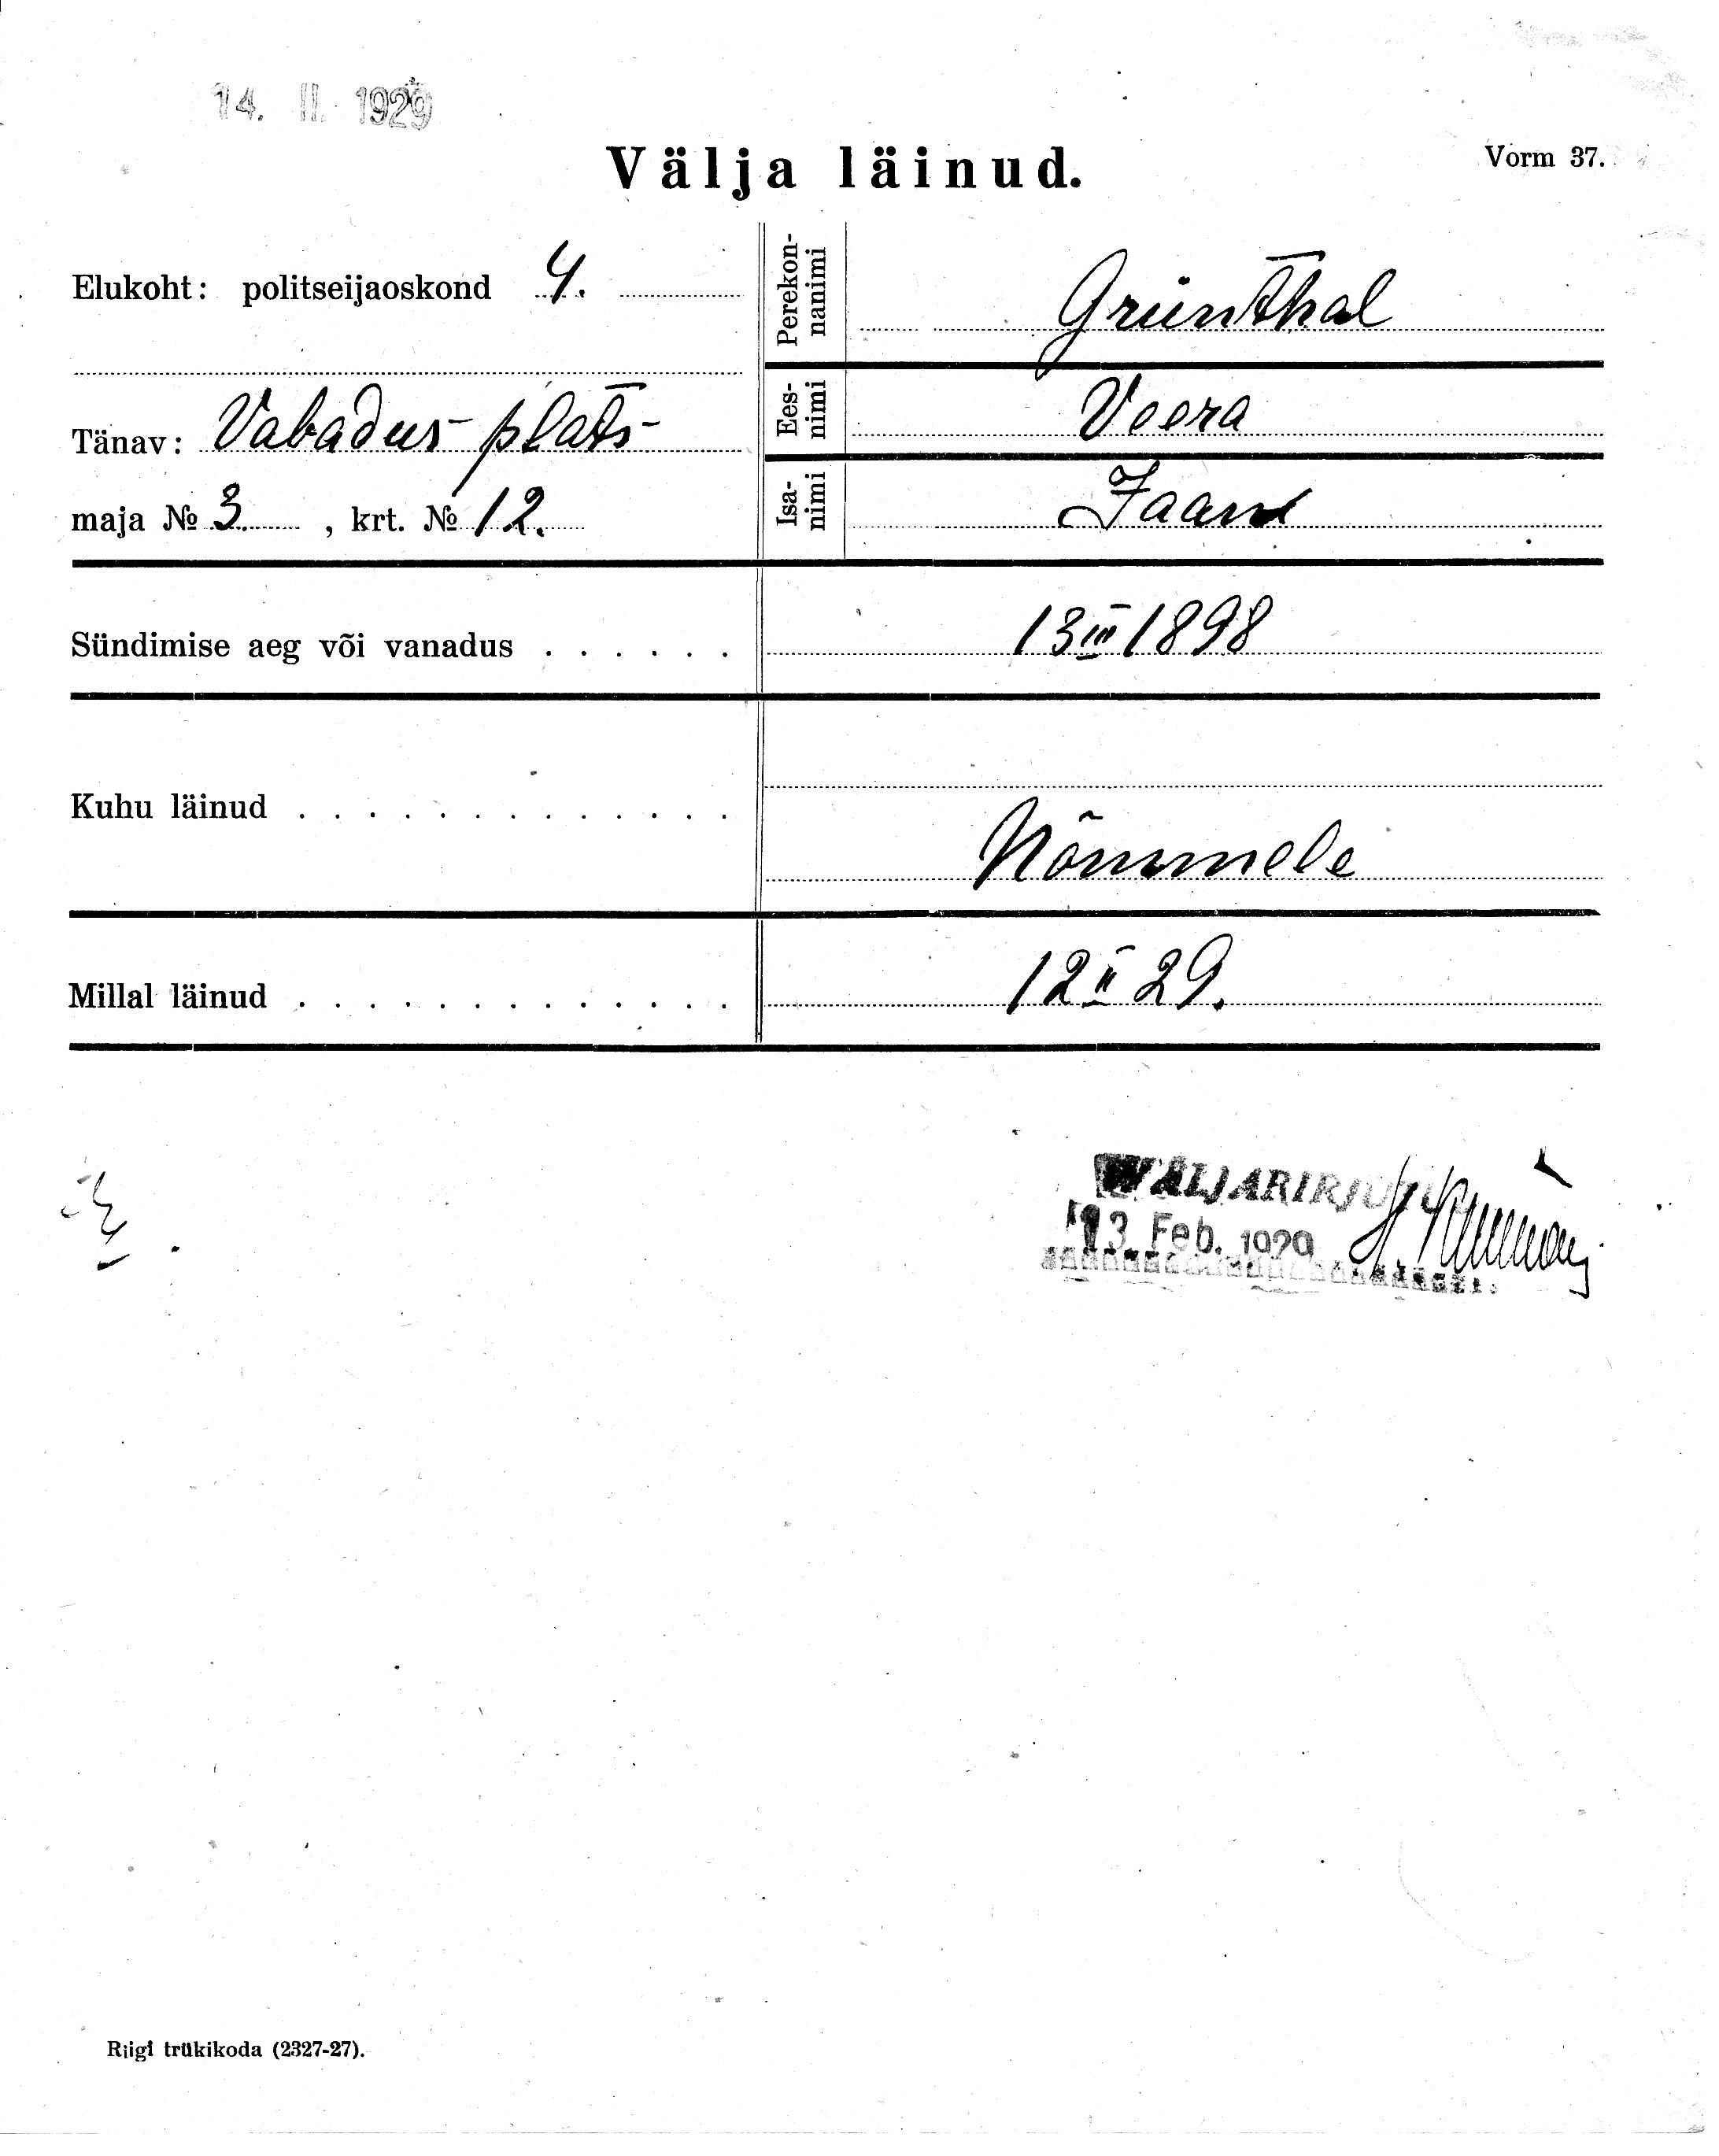 14. II. 1929
Välja läinud.
Vorm 37.
Elukoht: politseijaoskond 4.
Tänav: Vabadus- plats-
maja № 3. , krt. № 12.
Perekon-
nanimi
Grünthal
Ees-
nimi
Veera
Isa-
nimi
Jaan
Sündimise aeg või vanadus . . . . . . 13 III 1898
Kuhu läinud . . . . . . . . . . . . . Nõmmele
Millal läinud . . . . . . . . . . . . . 12 II 29.
13 Feb. 1929
Riigi trükikoda (2327-27).